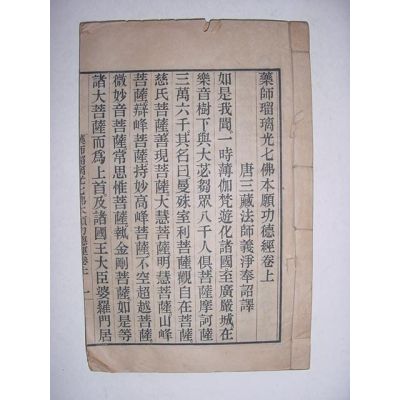 藥師瑠璃光七佛本願功德經卷上
唐三藏法師義淨奉詔譯
如是我聞一時薄伽梵遊化諸國至廣嚴城在
樂音樹下與大苾芻眾八千人俱菩薩摩訶薩
三萬六千其名曰曼殊室利菩薩觀自在菩薩
慈氏菩薩善現菩薩大慧菩薩明慧菩薩山峰
菩薩辯峰菩薩持妙高峰菩薩不空超越菩薩
微妙音菩薩常思惟菩薩執金剛菩薩如是等
諸大菩薩而為上首及諸國王大臣婆羅門居